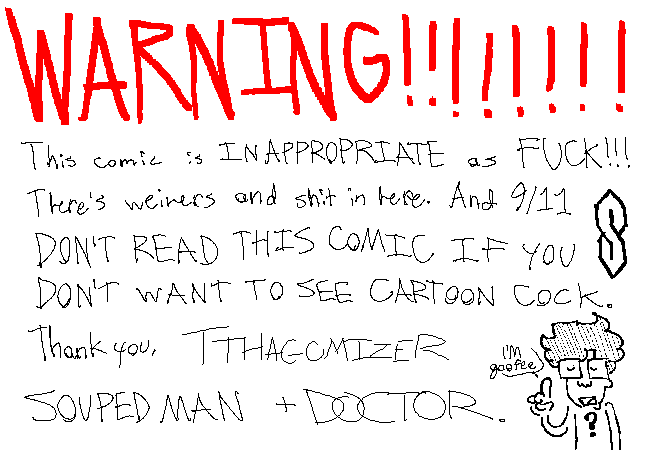 WARNING!!!!!!!!
This comic is INAPPROPRIATE as FUCK!!!
There's weiners and shit in here. And 9/11
DON'T READ THIS COMIC IF YOU
DON'T WANT TO SEE CARTOON COCK.
Thank you, TTHAGOMIZER
I'M
goofee
SOUPED MAN + DOCTOR.
?